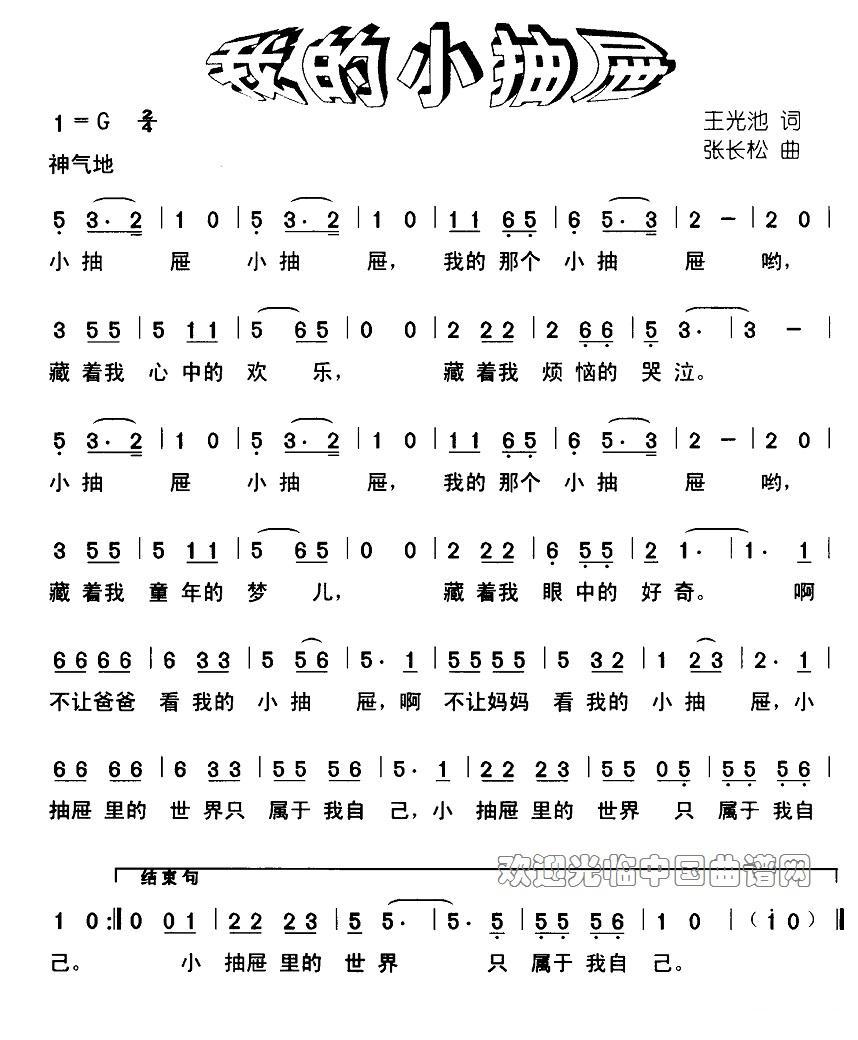 我的小抽屉
1=G 2/4
王光池 词
神气地
张长松 曲
5 3· 2 | 1 0 | 5 3· 2 | 1 0 | 1 1 6 5 | 6 5· 3 | 2 － | 2 0 |
小 抽 屉 小 抽 屉， 我的 那个 小 抽 屉 哟，
3 5 5 | 5 1 1 | 5 6 5 | 0 0 | 2 2 2 | 2 6 6 | 5 3· | 3 － |
藏 着我 心 中的 欢 乐， 藏 着我 烦 恼的 哭 泣。
5 3· 2 | 1 0 | 5 3· 2 | 1 0 | 1 1 6 5 | 6 5· 3 | 2 － | 2 0 |
小 抽 屉 小 抽 屉， 我的 那个 小 抽 屉 哟，
3 5 5 | 5 1 1 | 5 6 5 | 0 0 | 2 2 2 | 6 5 5 | 2 1· | 1· 1 |
藏 着我 童 年的 梦 儿， 藏 着我 眼 中的 好 奇。 啊
6 6 6 6 | 6 3 3 | 5 5 6 | 5· 1 | 5 5 5 5 | 5 3 2 | 1 2 3 | 2· 1 |
不让爸爸 看 我的 小 抽 屉，啊 不让妈妈 看 我的 小 抽 屉，小
6 6 6 6 | 6 3 3 | 5 5 5 6 | 5· 1 | 2 2 2 3 | 5 5 0 5 | 5 5 5 6 |
抽屉 里的 世 界只 属于 我自 己，小 抽屉 里的 世界 只 属于 我自
欢迎光临中国曲谱网
结束句
1 0 :‖ 0 0 1 | 2 2 2 3 | 5 5· | 5· 5 | 5 5 5 6 | 1 0 | （i 0）‖
己。 小 抽屉 里的 世 界 只 属于 我自 己。